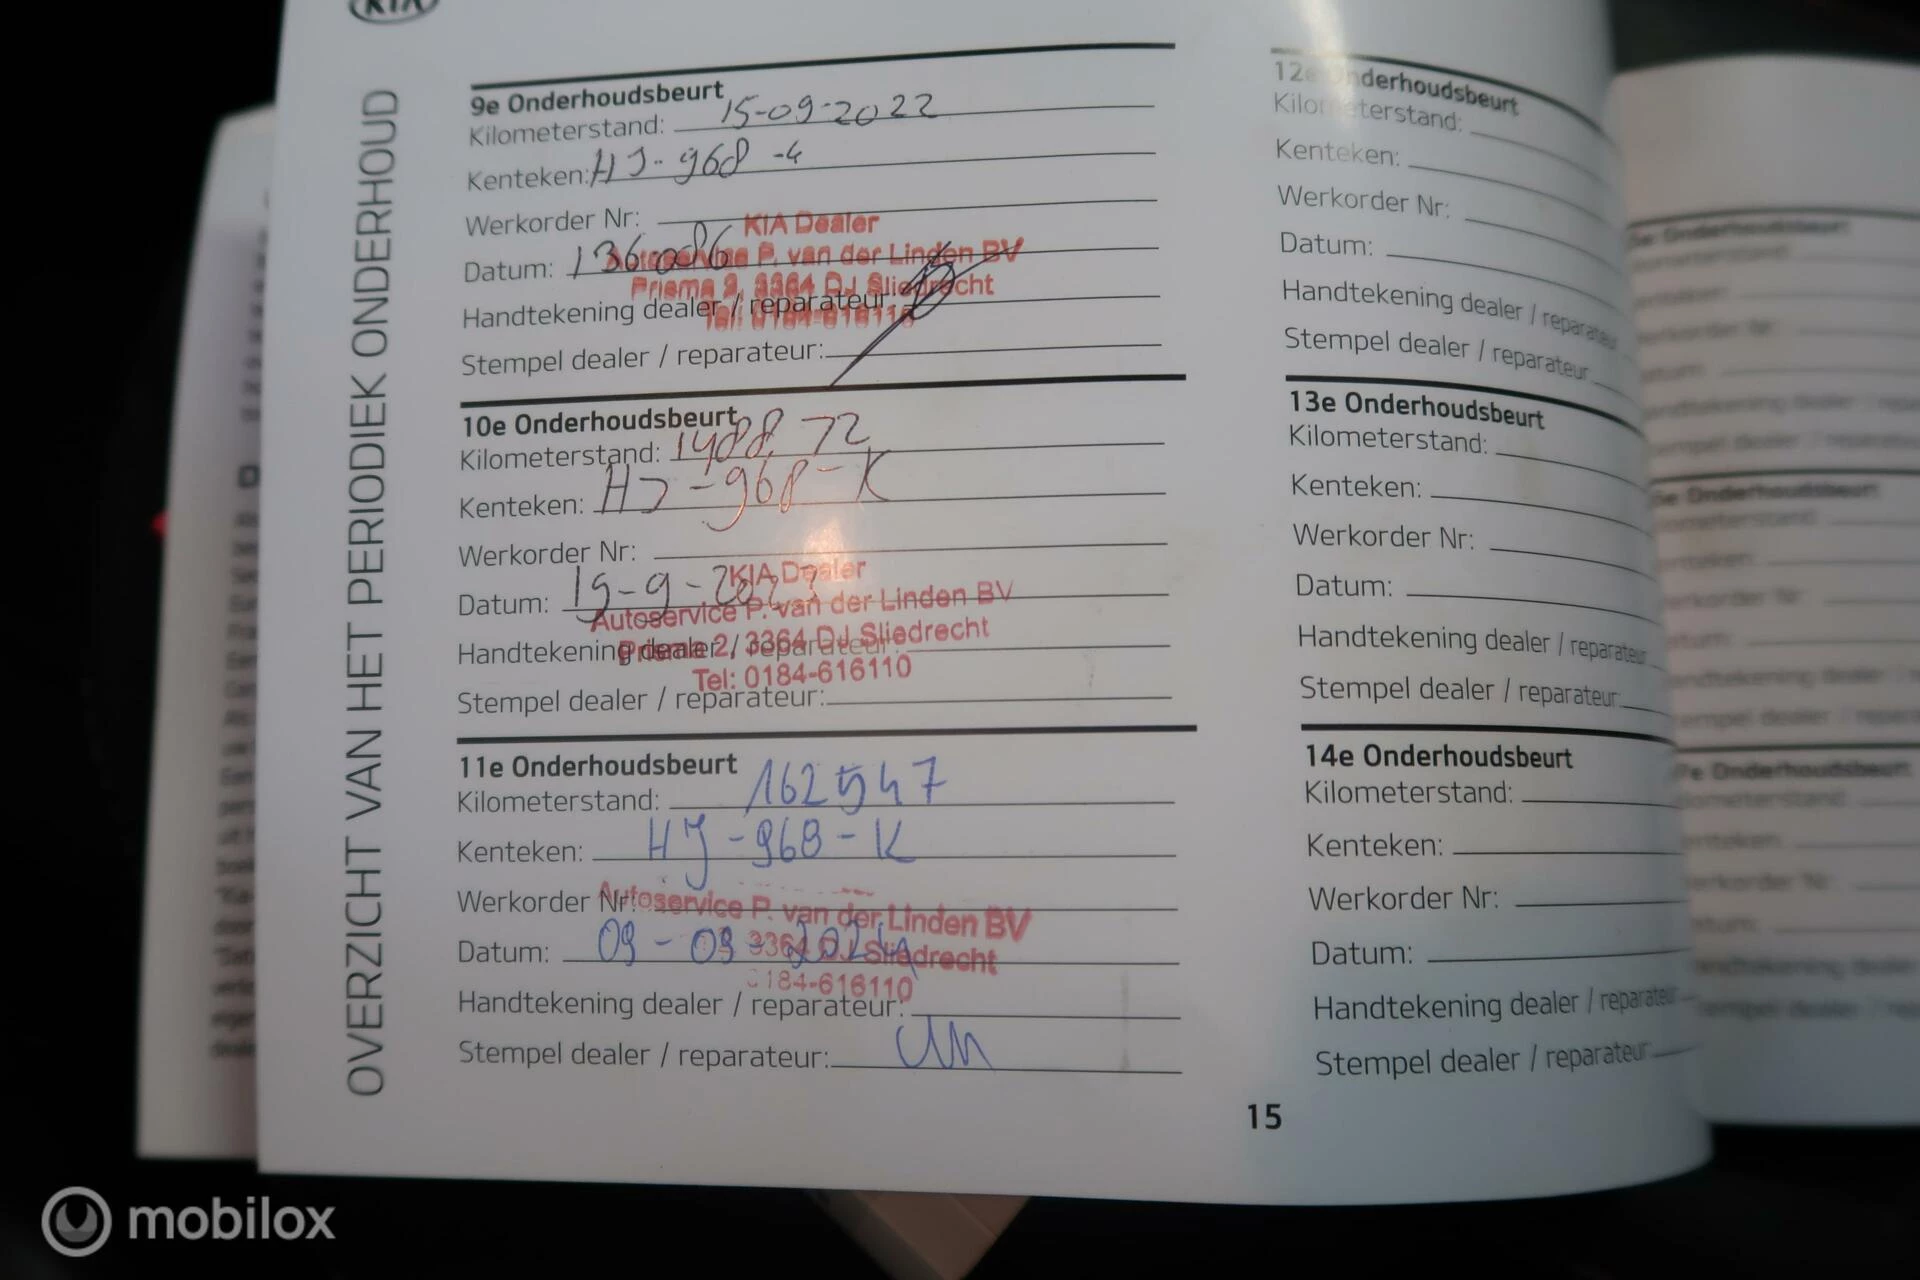 KIA
OVERZICHT VAN HET PERIODIEK ONDERHOUD
9e Onderhoudsbeurt
Kilometerstand: 15-09-2022
Kenteken: HJ-968-4
Werkorder Nr:
KIA Dealer
Autoservice P. van der Linden BV
Datum: 136086
Prisma 2, 3364 DJ Sliedrecht
Handtekening dealer / reparateur:
Tel: 0184-616110
Stempel dealer / reparateur:
10e Onderhoudsbeurt
Kilometerstand: 148872
Kenteken: HJ-968-K
Werkorder Nr:
KIA Dealer
Datum: 19-9-2023
Autoservice P. van der Linden BV
Prisma 2, 3364 DJ Sliedrecht
Handtekening dealer / reparateur:
Tel: 0184-616110
Stempel dealer / reparateur:
11e Onderhoudsbeurt
Kilometerstand: 162547
Kenteken: HJ-968-K
Werkorder Nr:
Autoservice P. van der Linden BV
Datum: 09-09-2024
3364 DJ Sliedrecht
0184-616110
Handtekening dealer / reparateur:
Stempel dealer / reparateur:
12e Onderhoudsbeurt
Kilometerstand:
Kenteken:
Werkorder Nr:
Datum:
Handtekening dealer / reparateur
Stempel dealer / reparateur
13e Onderhoudsbeurt
Kilometerstand:
Kenteken:
Werkorder Nr:
Datum:
Handtekening dealer / reparateur
Stempel dealer / reparateur:
14e Onderhoudsbeurt
Kilometerstand:
Kenteken:
Werkorder Nr:
Datum:
Handtekening dealer / reparateur
Stempel dealer / reparateur:
15
mobilox